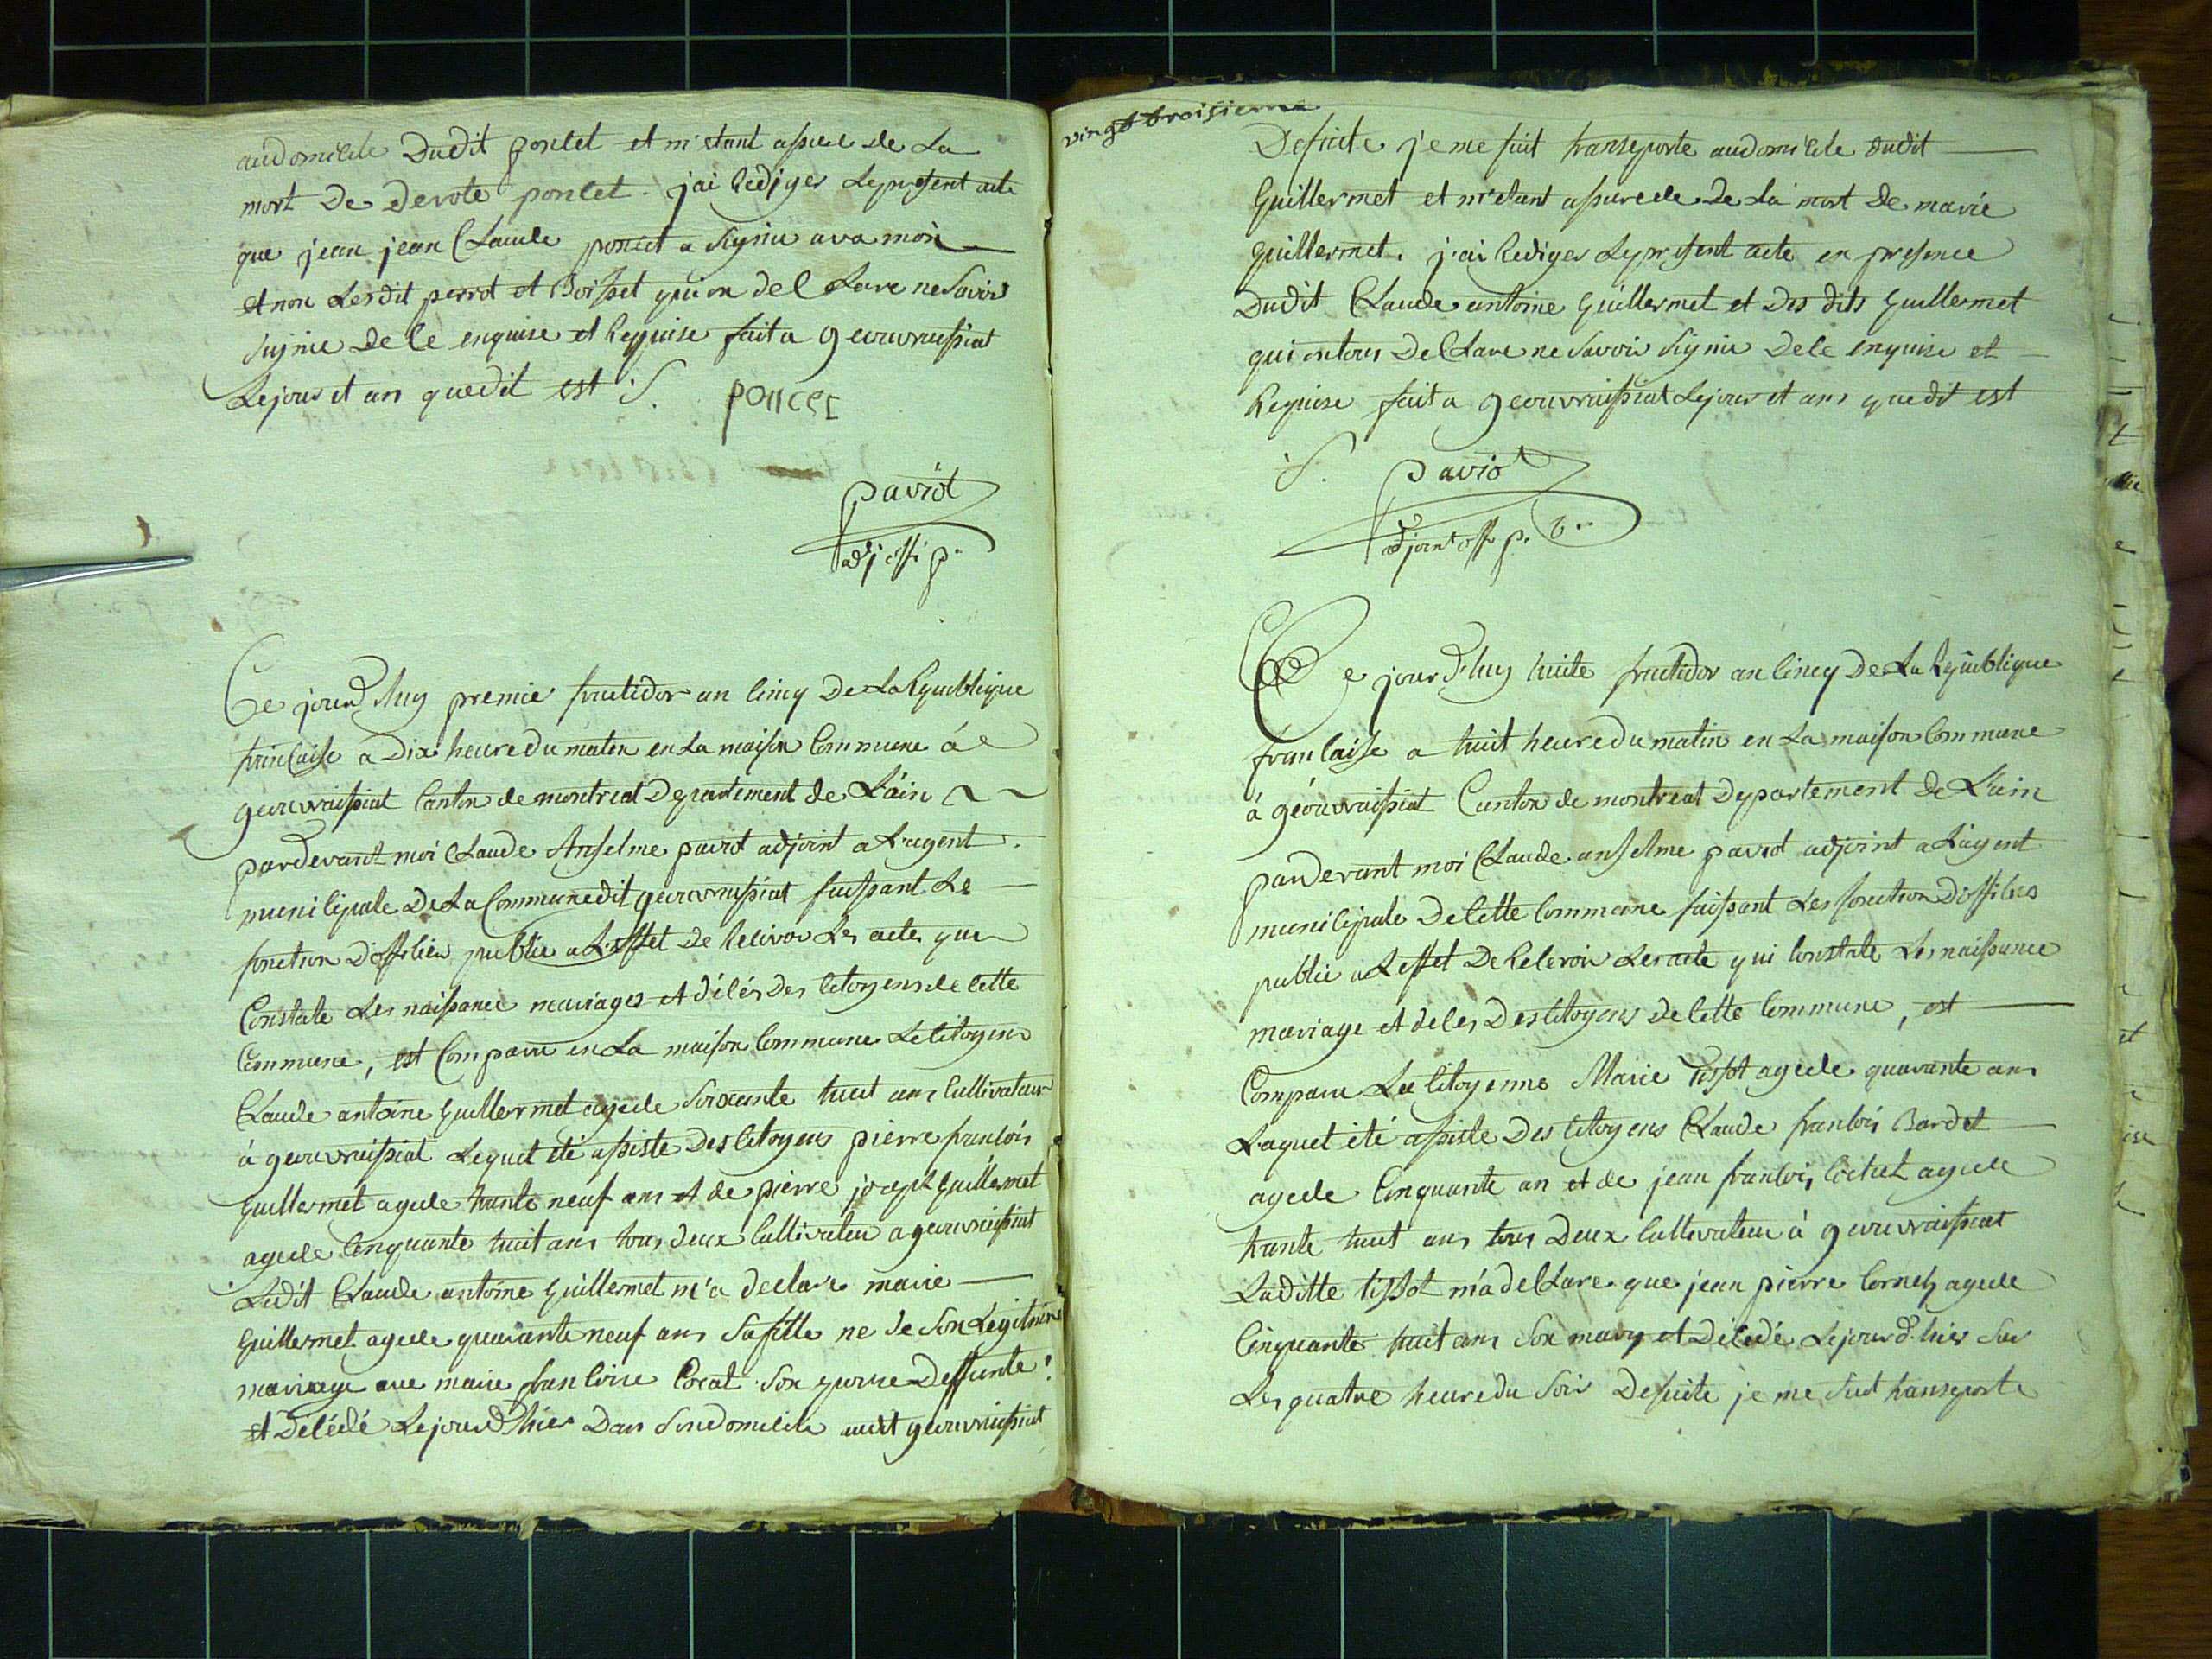 audomicile Dudit ponset et m'etant assure de La
mort De Devote ponset. j'ai Rediger Lepresent acte
que jean jean Claude poncet a Signie ava moi
et non Lesdit perrot et Boisset qui on declare ne Savoir
Signie de Ce enquise et Requise fait a geouvraissiat
Lejour et an quedit est S. poncet
paviot
adj offi p.
Ce jourd'huy premie fructidor an Cinq De La Republique
francaise a Dix heure du maten en La maison Commune á
geouvraissiat Canton de montreal Departement de L'ain
pardevant moi Claude Anselme paviot adjoint a L'agent
municipale De La Commune dit geouvraissiat faissant Le
fonction D'officier publie a L'effet de Recivoir Les actes que
Constate Les naissance mariages et déces Des Citoyens de Cette
Commune, est Comparu en La maison Commune Le Citoyen
Claude antoine Guillermet agede Soixante huit ans Cultivateur
à geouvraissiat Lequel été assiste Des Citoyens pierre francois
Guillermet agede trante neuf ans et de pierre joseph Guillermet
agede Cinquante huit ans tous deux Cultivateu a geouvraissiat
Ledit Claude antoine Guillermet m'a declare marie
Guillermet agede quarante neuf ans Safille ne de Son Legitime
mariage ave marie francoise Cocat Son epouse Deffunte
et Décédé Lejourd'hier Dans Sondomicile audit geouvraissiat
vingt troisieme
Desuite je me suit transporte audomicile dudit
Guillermet et m'etant assurede de La mort De marie
Guillermet. j'ai Rediger Lepresent acte en presence
Dudit Claude antoine Guillermet et Des dits Guillermet
qui ontous Declare ne Savoir Signie Dece enquise et
Requise fait a geouvraissiat Lejour et ans quedit est
S. paviot
adjoint off p.
Ce jour d'huy huite fructidor an Cinq De La Republique
francaise a huit heure du matin en La maison Commune
à géouvraissiat Canton de montreal Departement De L'ain
pardevant moi Claude anselme paviot adjoint a L'agent
municipale De Cette Commune faissant Les fonction D'officies
publie a L'effet De Recevoir Les acte qui Constate Les naissance
mariage et déces Des Citoyens De Cette Commune, est
Comparu La Citoyenne Marie Tissot agede quarante ans
Laquel été assiste Des Citoyens Claude francois Bardet
agede Cinquante an et de jean francois agede
trante huit ans tous Deux Cultivateu à geouvraissiat
Laditte tissot m'a declare que jean pierre agede
Cinquante huit ans Son mary et Décédé Lejourd'hier Sur
Les quatre heure du Soir Desuite je me Suit transporte